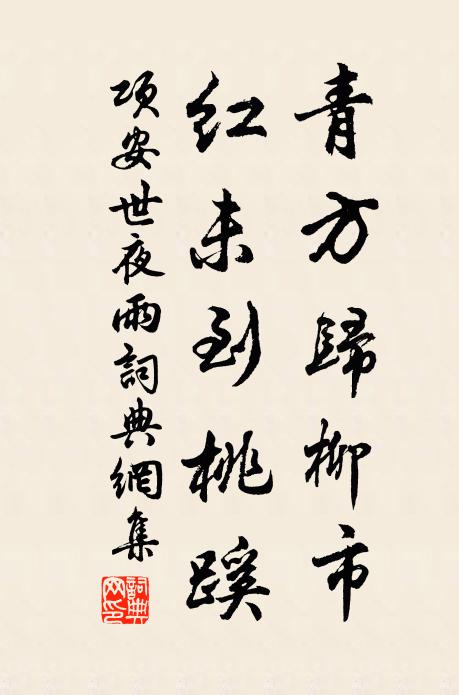 青方歸柳市
紅未到桃蹊
項安世夜雨詞典網集
詞典